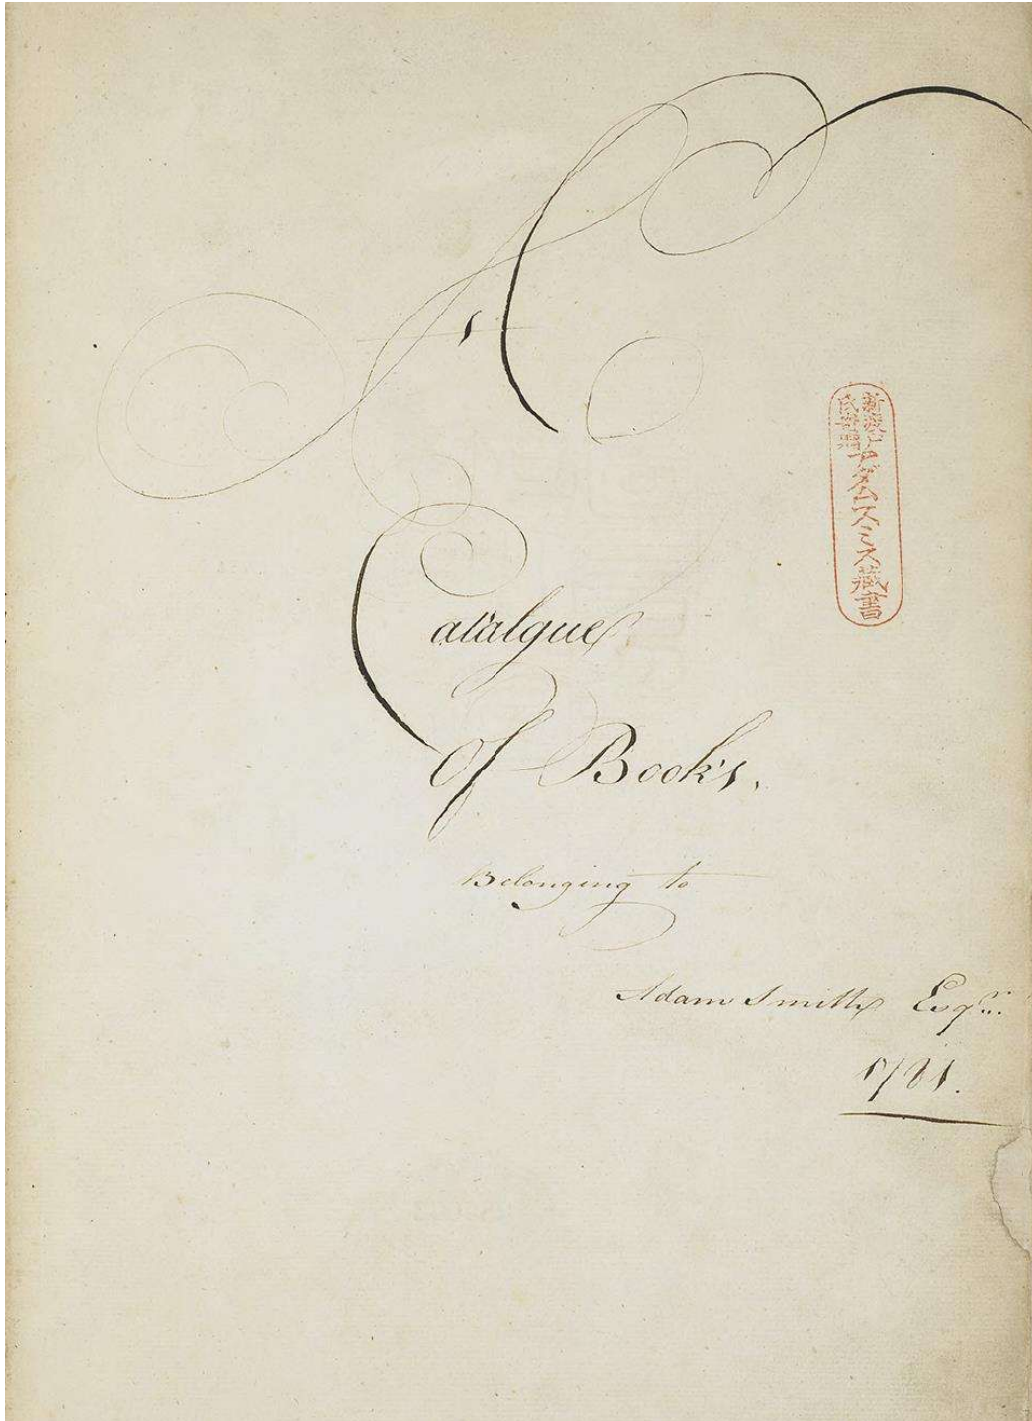 A
Catalgue
Of Books,
Belonging to
Adam Smith Esqr.
1781.
新渡戸
氏寄贈
アダムスミス藏書